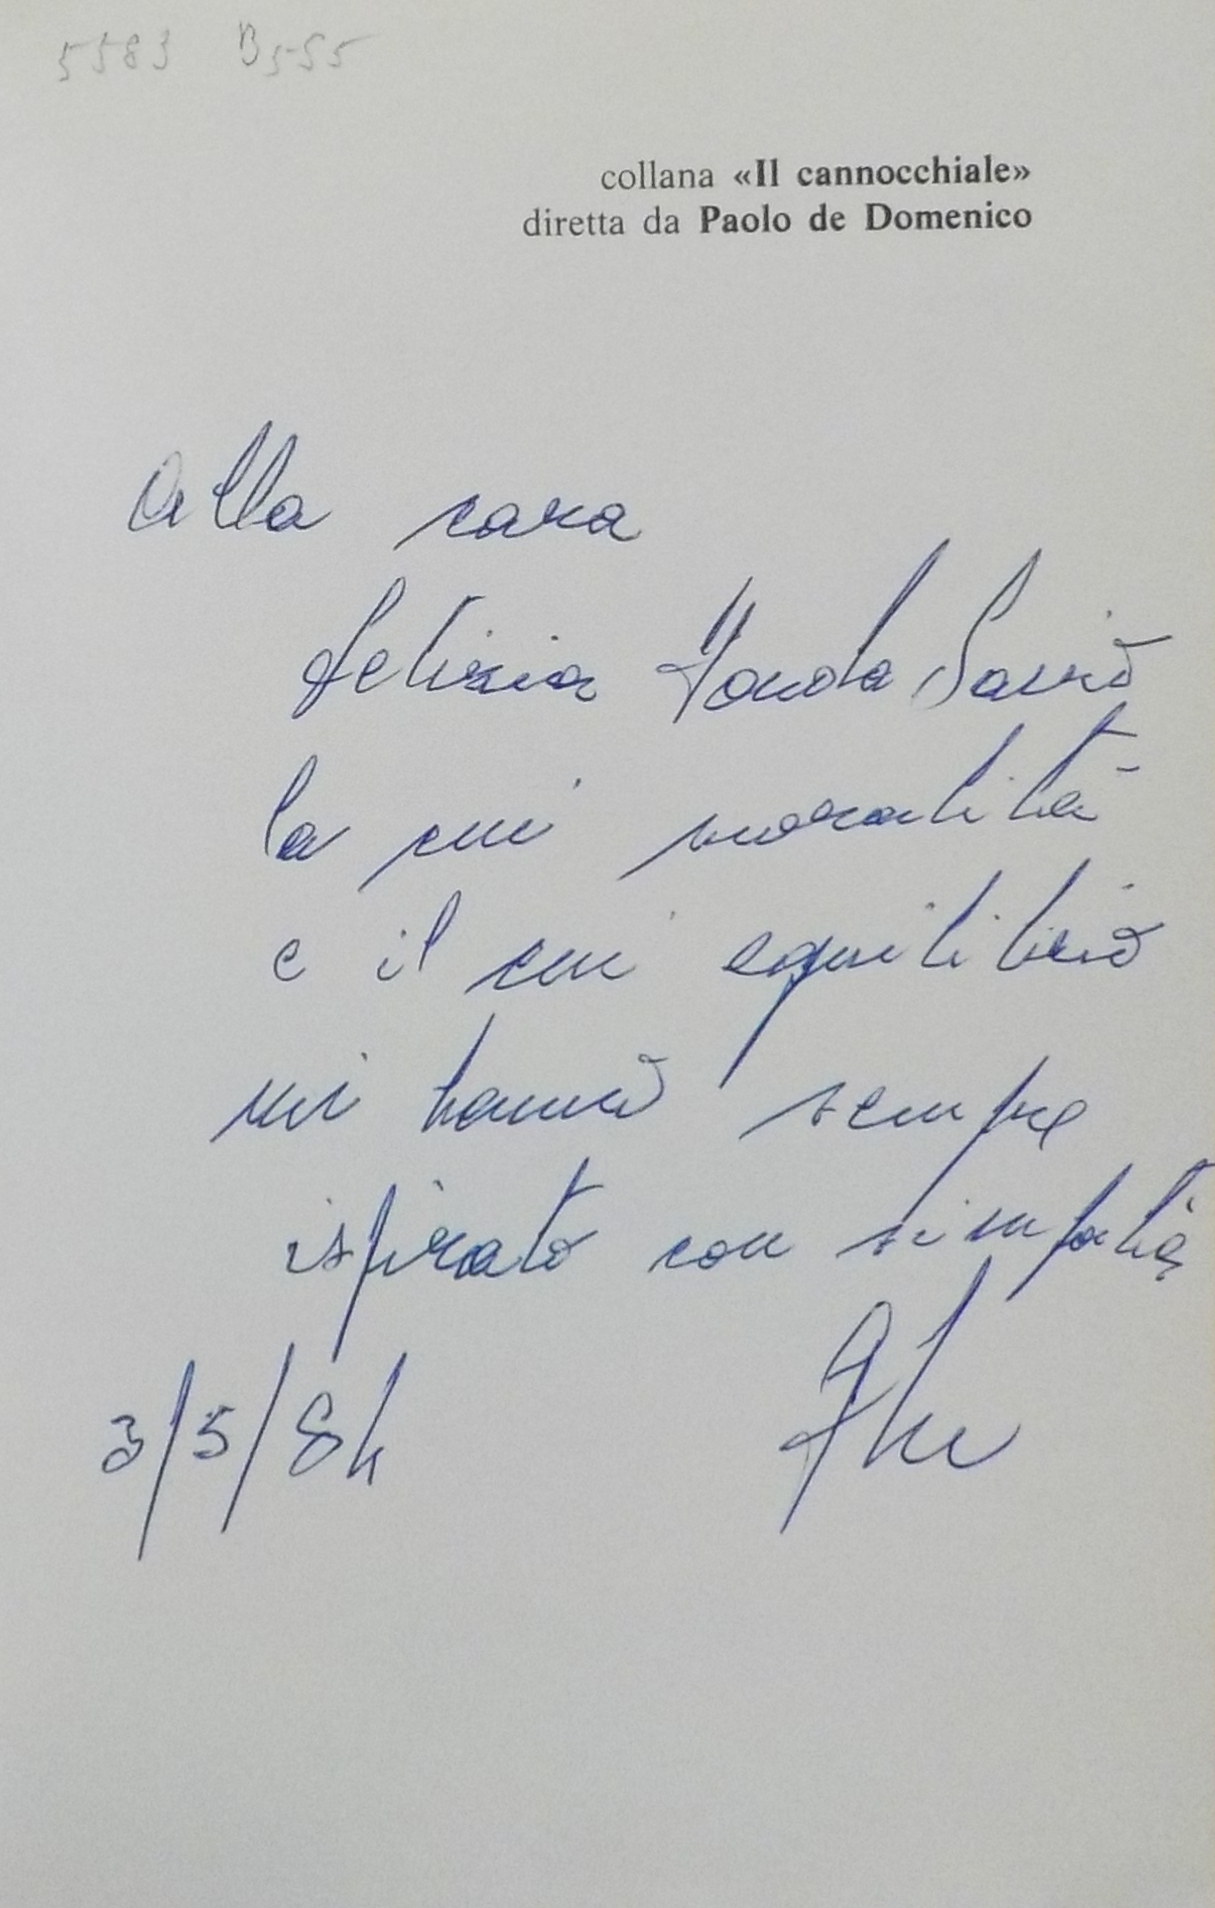 5583 B555
collana «Il cannocchiale»
diretta da Paolo de Domenico
Alla cara
Letizia Fonda Savio
la cui moralità
e il cui equilibrio
mi hanno sempre
ispirato con simpatia
3/5/84